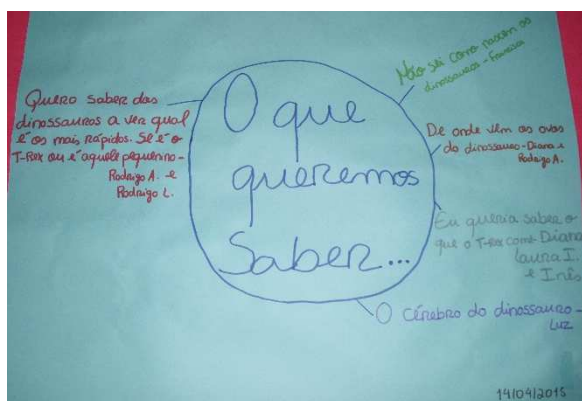 O que
queremos
Saber...
Quero saber das
dinossauros a ver qual
é os mais rápidos. Se é o
T-Rex ou é aquele pequenino-
Rodrigo A. e
Rodrigo L.
Não sei como nascem os
dinossauros - Francisca
De onde vêm os ovos
do dinossauro - Diana e
Rodrigo A.
Eu queria saber o
que o T-Rex come - Diana
Laura I.
e Inês
O Cérebro do dinossauro -
Luz
14/04/2015